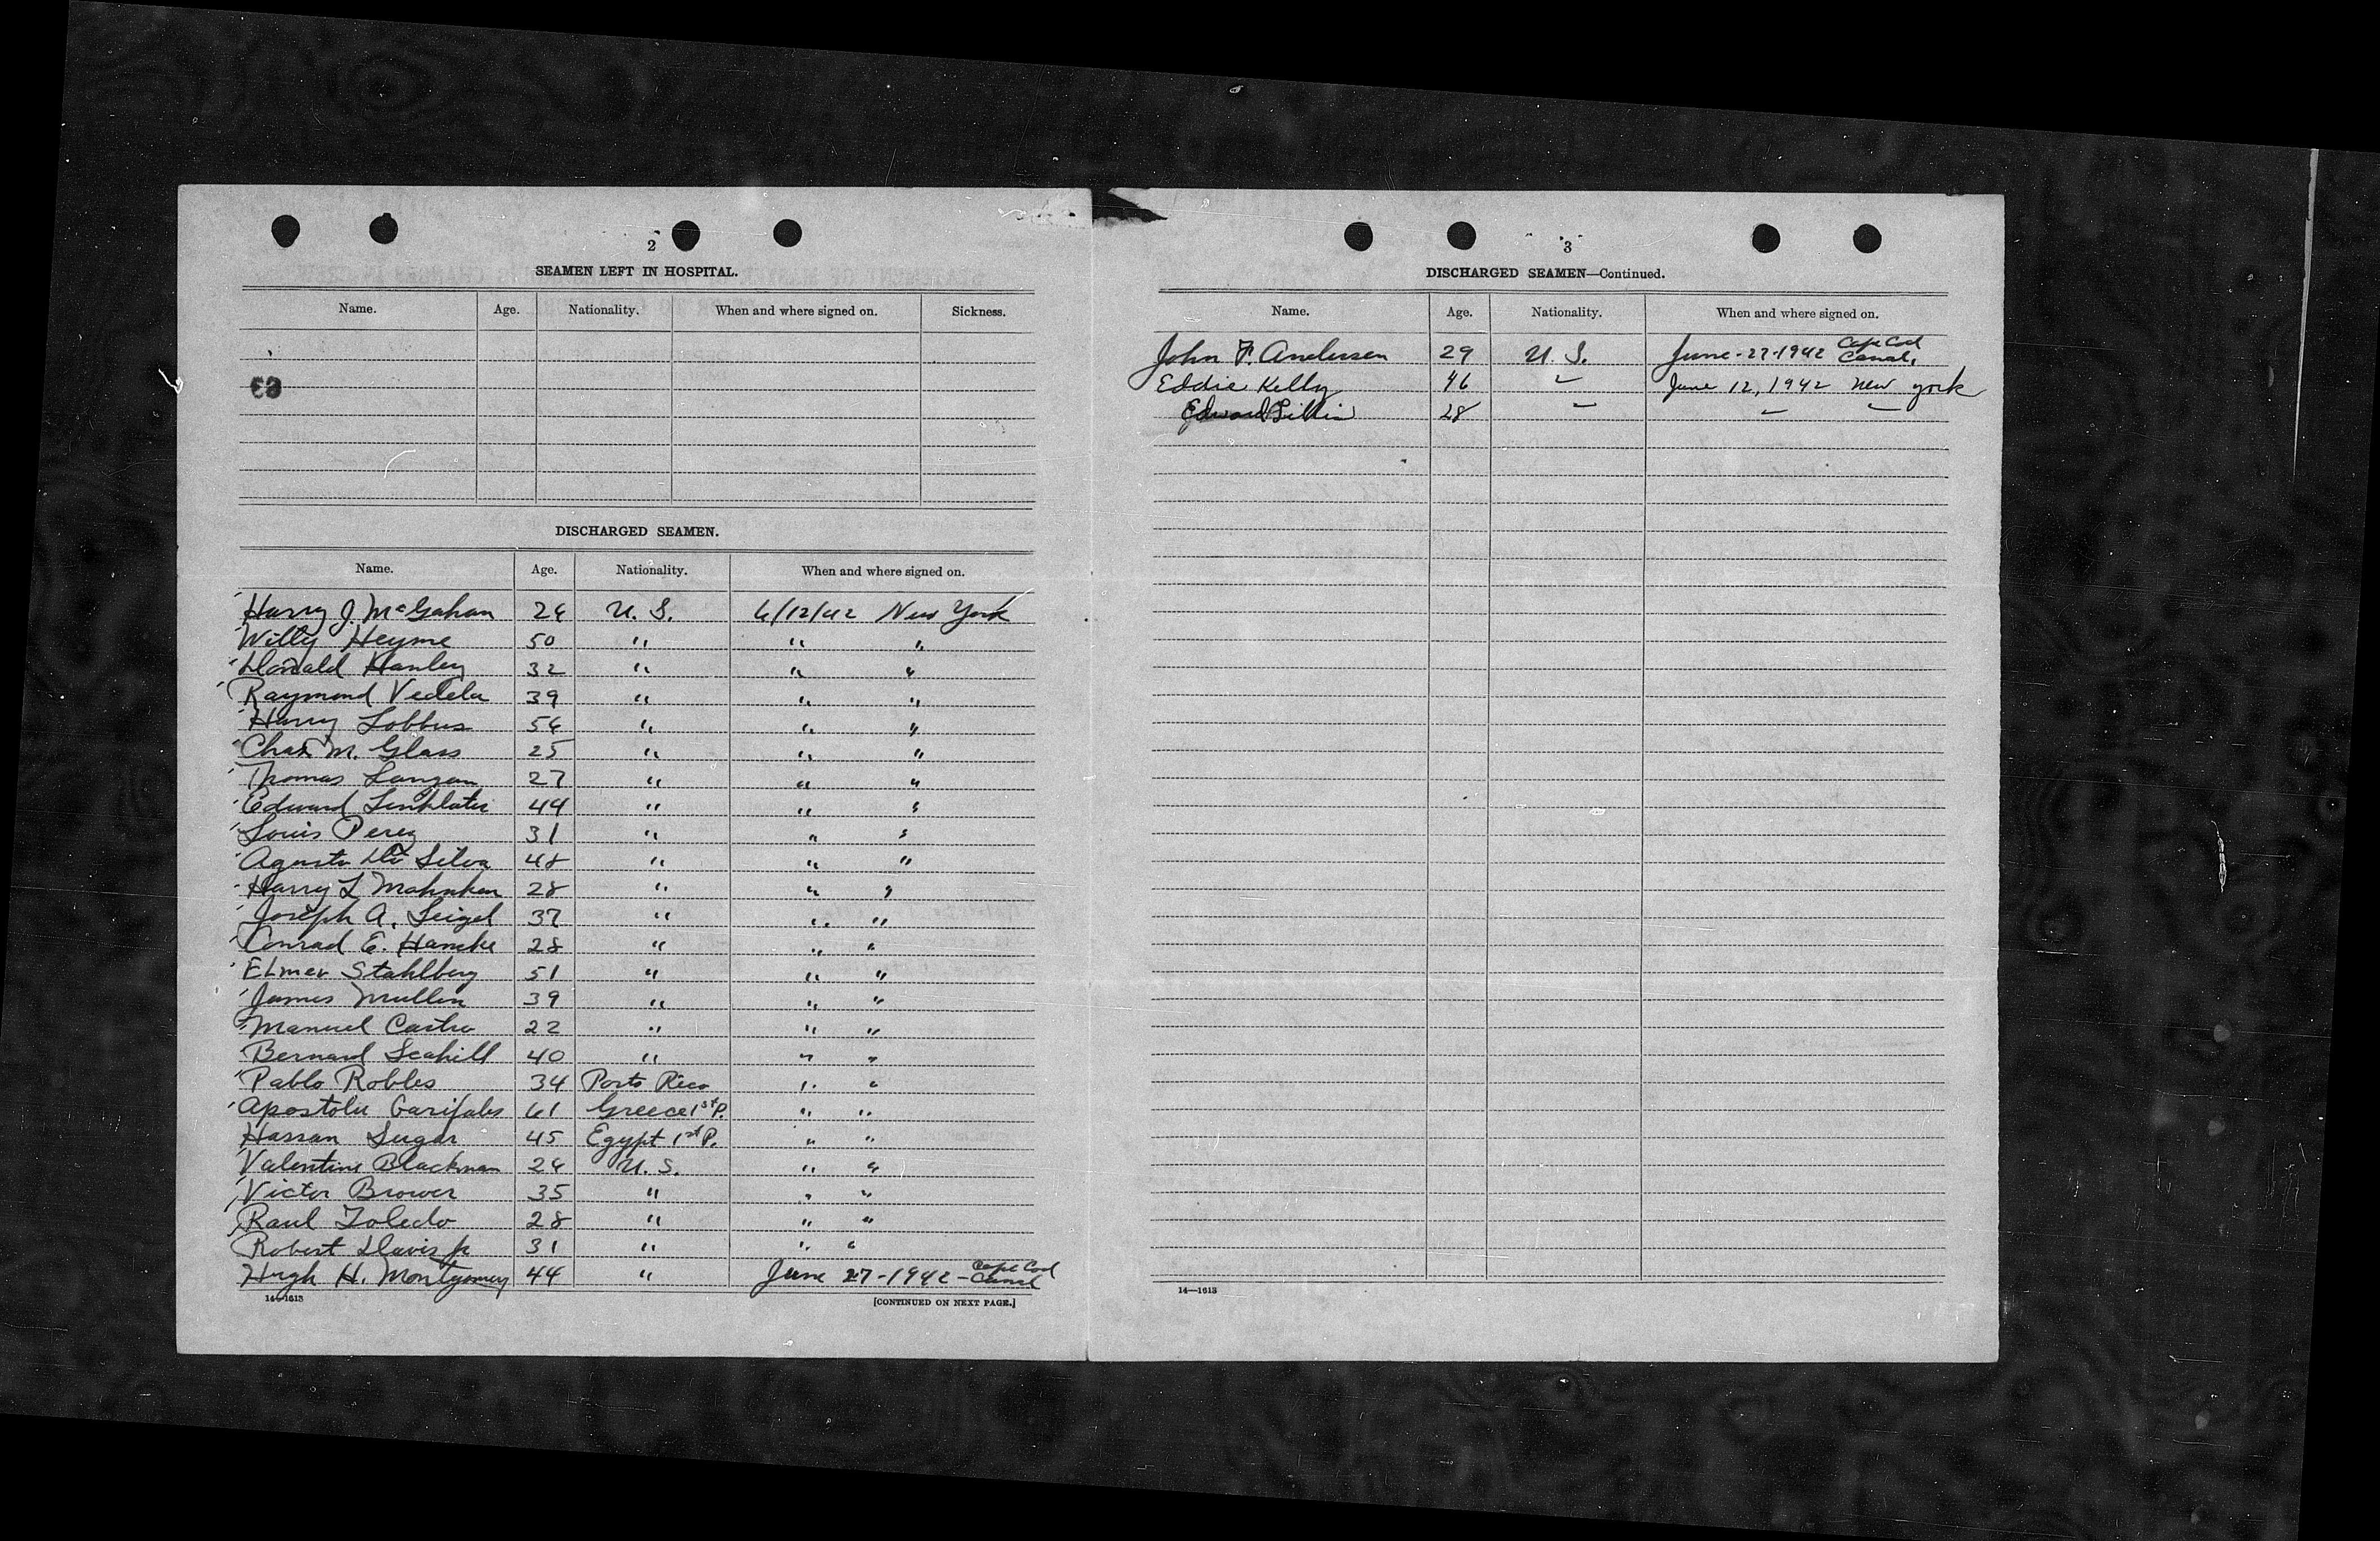 2
SEAMEN LEFT IN HOSPITAL.
Name. Age. Nationality. When and where signed on. Sickness.
DISCHARGED SEAMEN.
Name. Age. Nationality. When and where signed on.
Harry J. McGahan 26 U. S. 6/12/42 New York
Willy Heyme 50 " " "
Donald Hanley 32 " " "
Raymond Vedela 39 " " "
Harry Lobbus 56 " " "
Chas M. Glass 25 " " "
Thomas Langan 27 " " "
Edward Linklater 49 " " "
Louis Perez 31 " " "
Agusto Da Silva 48 " " "
Harry L Mahnken 28 " " "
Joseph A. Seigel 37 " " "
Conrad E. Hancke 28 " " "
Elmer Stahlberg 51 " " "
James Mullen 39 " " "
Manuel Castro 22 " " "
Bernard Scahill 40 " " "
Pablo Robles 34 Porto Rico " "
Apostolu Garifales 61 Greece 1st P. " "
Hassan Sugar 45 Egypt 1st P. " "
Valentine Blackman 26 U. S. " "
Victor Brower 35 " " "
Raul Toledo 28 " " "
Robert Davis Jr 31 " " "
Hugh H. Montgomery 44 " June 27-1942-Cape Cod Canal
14—1613
[CONTINUED ON NEXT PAGE.]
3
DISCHARGED SEAMEN—Continued.
Name. Age. Nationality. When and where signed on.
John F. Andersen 29 U. S. June-27-1942 Cape Cod Canal,
Eddie Kelly 46 " June 12, 1942 New York
Edward 28 " " "
14—1613